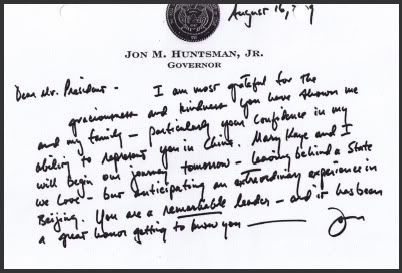 August 16, 9
JON M. HUNTSMAN, JR.
GOVERNOR
Dear Mr. President - I am most grateful for the
graciousness and kindness you have shown me
and my family - particularly your confidence in my
ability to represent you in China. Mary Kaye and I
will begin our journey tomorrow - leaving behind a State
we love - but anticipating an extraordinary experience in
Beijing. You are a remarkable leader - and it has been
a great honor getting to know you - Jon